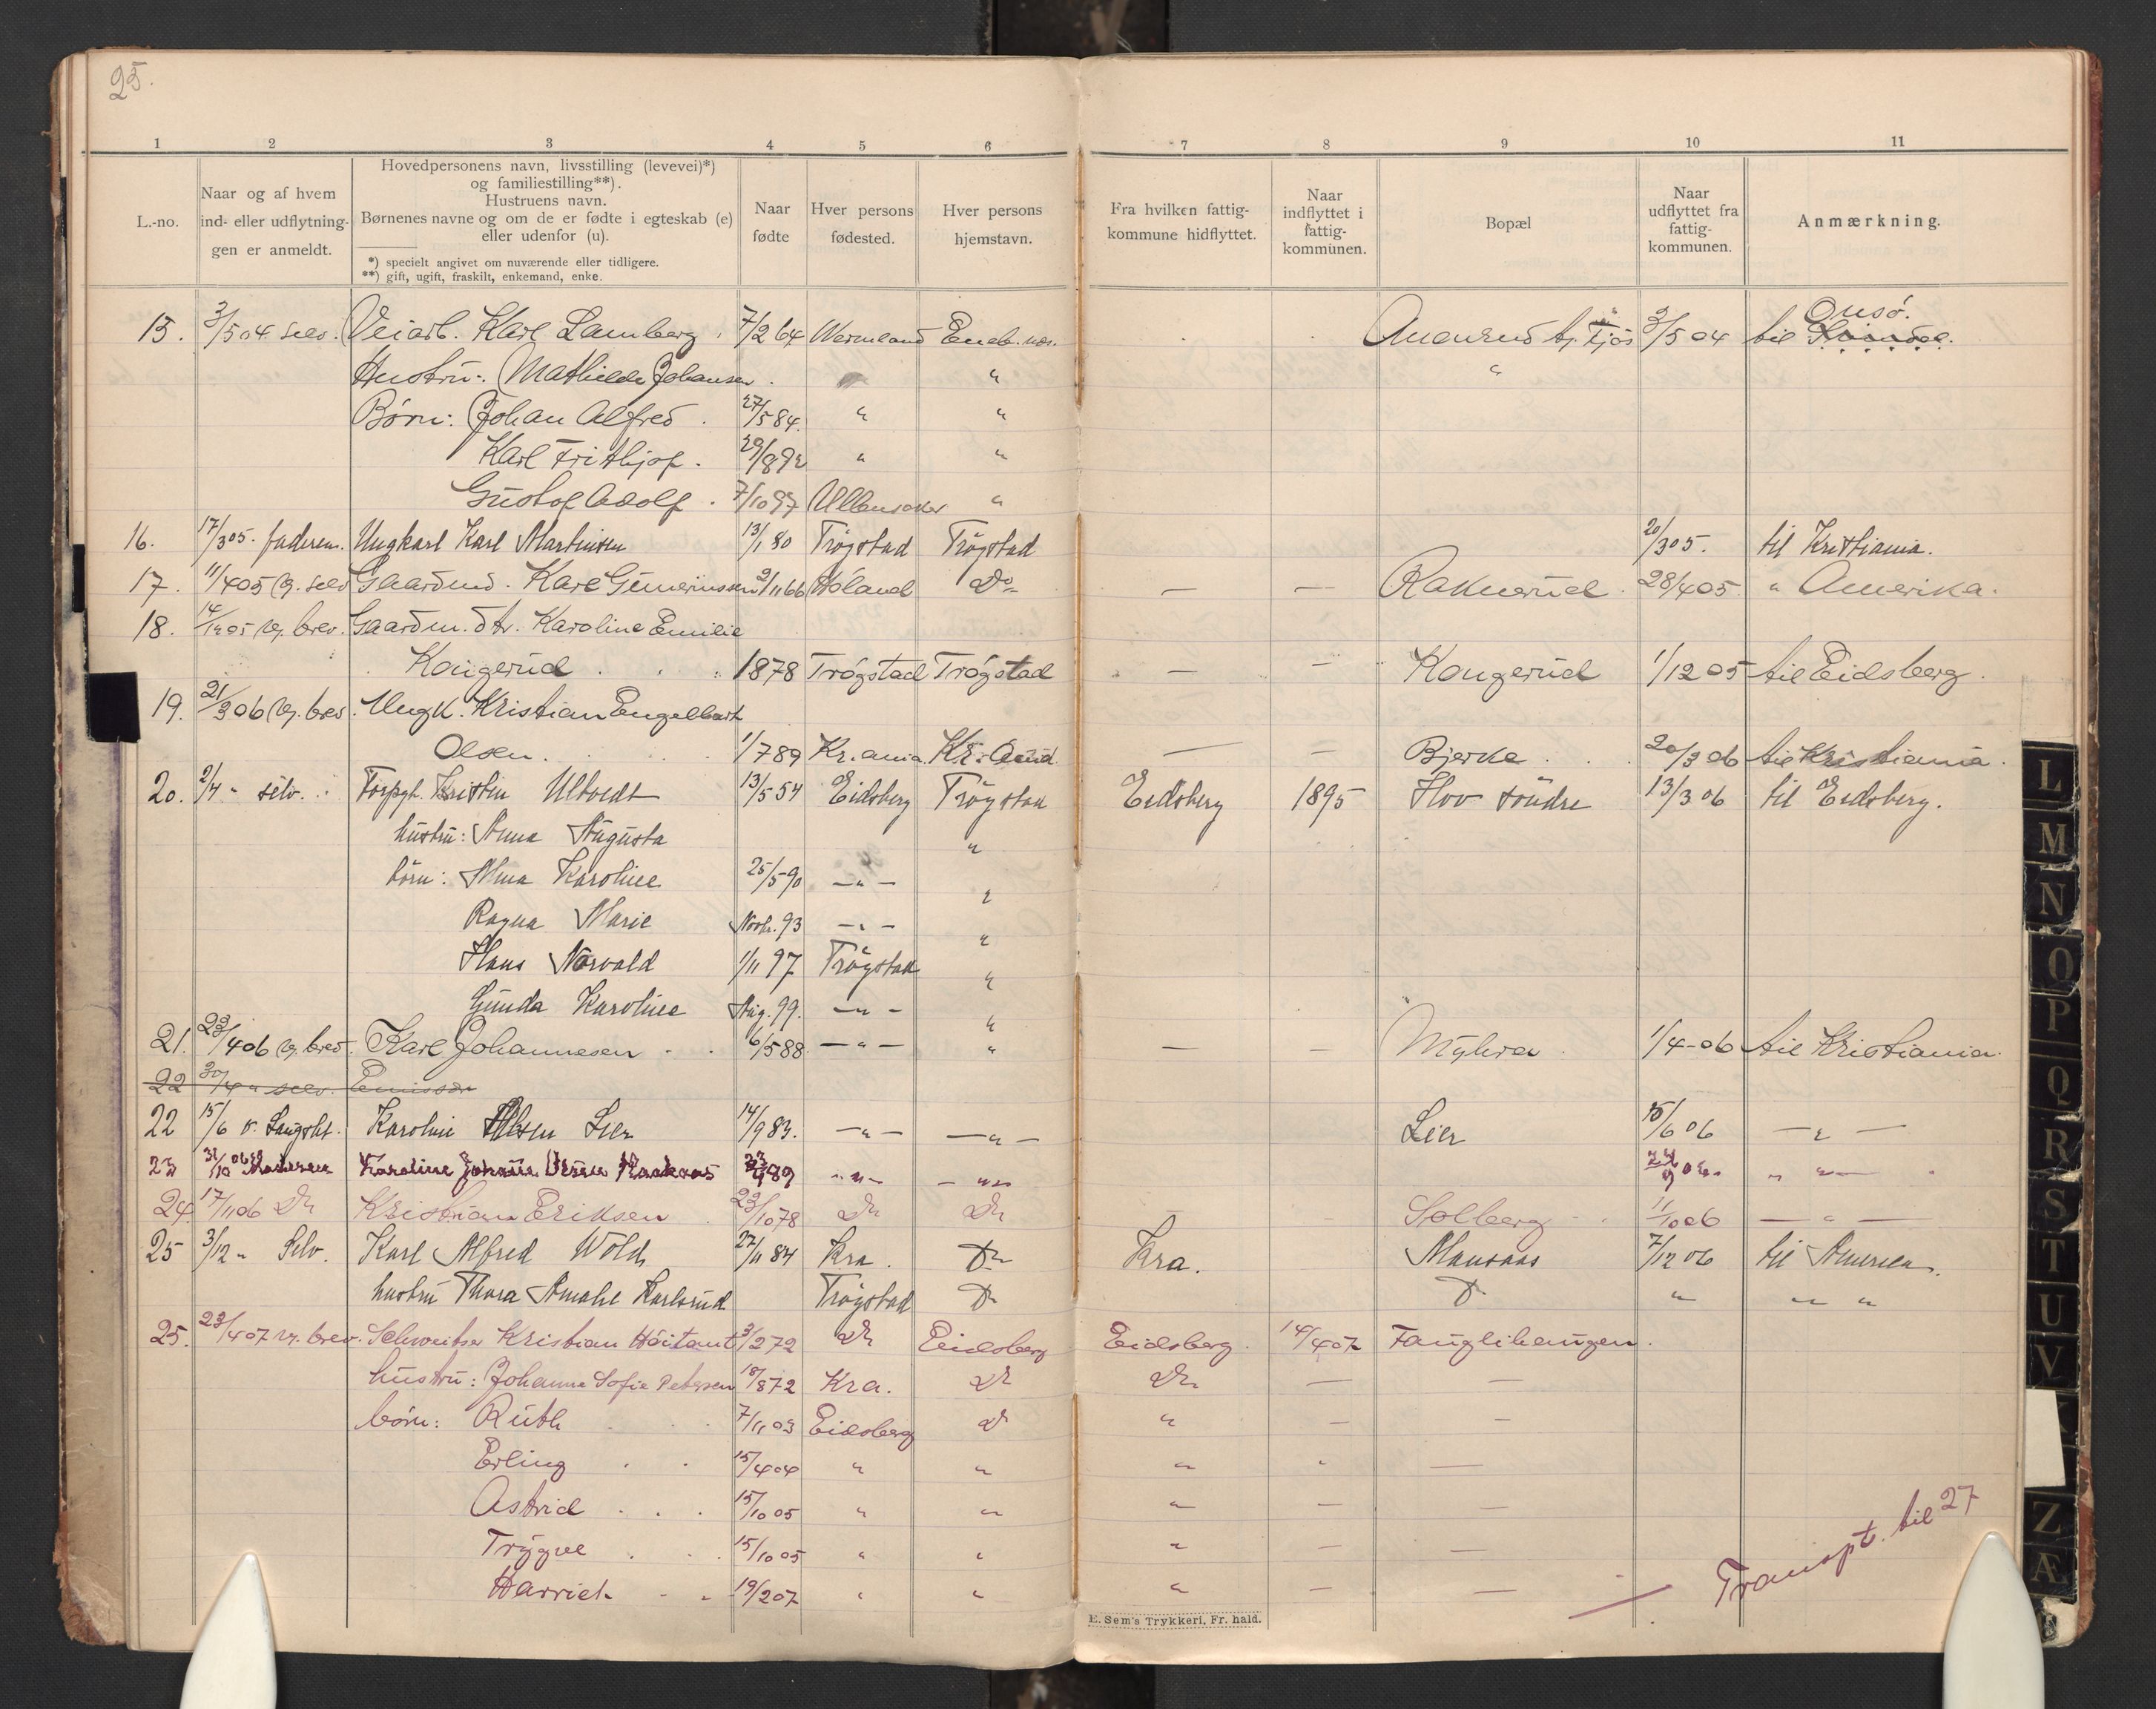 25.
1 2 3 4 5 6 7 8 9 10 11
L.-no.
Naar og af hvem
ind- eller udflytning-
gen er anmeldt.
Hovedpersonens navn, livsstilling (levevei)*)
og familiestilling**).
Hustruens navn.
Børnenes navne og om de er fødte i egteskab (e)
eller udenfor (u).
*) specielt angivet om nuværende eller tidligere.
**) gift, ugift, fraskilt, enkemand, enke.
Naar
fødte
Hver persons
fødested.
Hver persons
hjemstavn.
Fra hvilken fattig-
kommune hidflyttet.
Naar
indflyttet i
fattig-
kommunen.
Bopæl
Naar
udflyttet fra
fattig-
kommunen.
Anmærkning.
15. 3/5 04 selv. Veiarb. Karl Lamberg. 7/2 64 Wermland Eneb. 3/5 04 til Onsø.
Hustru: Mathilde Johansen. " "
Børn: Johan Alfred. 27/5 84. " "
Karl Frithjof. 29/8 92 " "
Gustof Adolf. 7/10 97 Ullensaker "
16. 17/3 05. faderen. Ungkarl Karl Martinsen 13/1 80 Trögstad Trögstad 20/3 05. til Kristiania.
17. 11/4 05 selv Gaardmd. Karl Gunerinssen 2/11 66 Höland Do — — Raknerud 28/4 05 " Amerika.
18. 14/12 05 brev. Gaardm. dtr. Karoline Emilie
Kongerud 1878 Trögstad Trögstad — — Kongerud 1/12 05 til Eidsberg.
19. 21/3 06 brev. Ungk. Kristian Engelbart
Olsen. 1/7 89 Kr.ania — — Bjerke 20/3 06 til Kristiania.
20. 2/4 " selv. Kristin Ultvedt 13/5 54 Eidsberg Trögstad Eidsberg 1895 Hov söndre 13/3 06 til Eidsberg.
hustru: Anna Augusta "
börn: Alma Karoline 25/5 90 — " — "
Ragna Marie Novbr. 93 — " — "
Hans Norvald 1/11 97 Trögstad "
Gunda Karoline Aug. 99. — " — "
21. 23/4 06 brev. Karl Johannesen 6/5 88 — " — " — — 1/4-06 til Kristiania.
22 30/4 " selv. Emissær
22 15/6 Karoline Olsen Lier 14/9 83. — " — — " — Lier 15/6 06 — " —
23 Karoline Haakaas — " — — " — " " —
24. 17/11 06 Do Kristian Eriksen 23/10 78 Do Do — — Solberg 11/10 06 — " —
25 3/12 " Selv. Karl Alfred Wold 27/11 84 Kra. Do Kra. Mansaas 7/12 06 til Amerika.
hustru Thora Amalie Karlsrud Trögstad Do Do " " "
25. 23/4 07 brev. Schweitser Kristian Höitomt 3/2 72 Do Eidsberg Eidsberg 14/4 07 Fanglihaugen.
hustru: Johanna Sofie Petersen 18/8 72 Kra. Do Do — —
börn: Ruth 7/11 03 Eidsberg Do " — —
Erling 15/4 04 " " " " —
Astrid 15/10 05 " " " — —
Trygve 15/10 05 " " " — —
Harriet 19/2 07 " " " — —
Transpt. til 27
E. Sem's Trykkeri, Fr. hald.
L
M
N
O
P
Q
R
S
T
U
V
Z
Æ